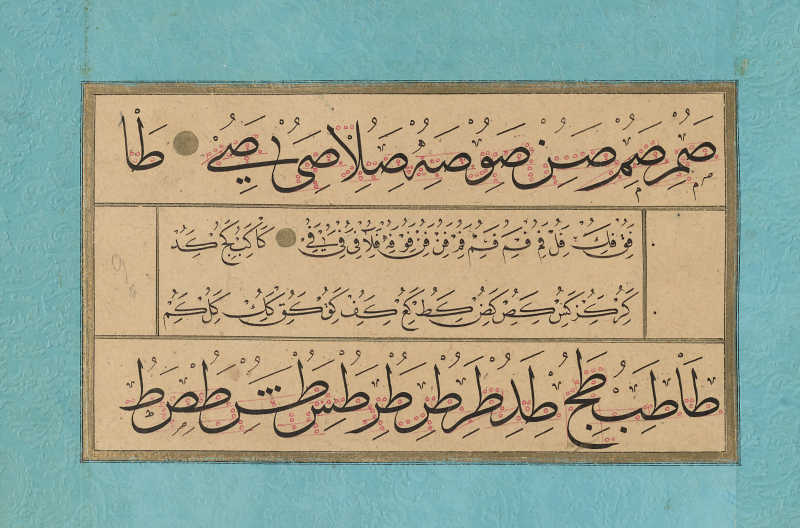 صمر صم صن صو صه صلا صى صے طا
فق فك فل فم فم فم فمر فن فن فو فه فلا فى فى فے كا كب كج كد
كر كز كس كص كض كط كع كف كق كق كك كل كم
طا طب طج طد طر طر طر طس طش طص طط